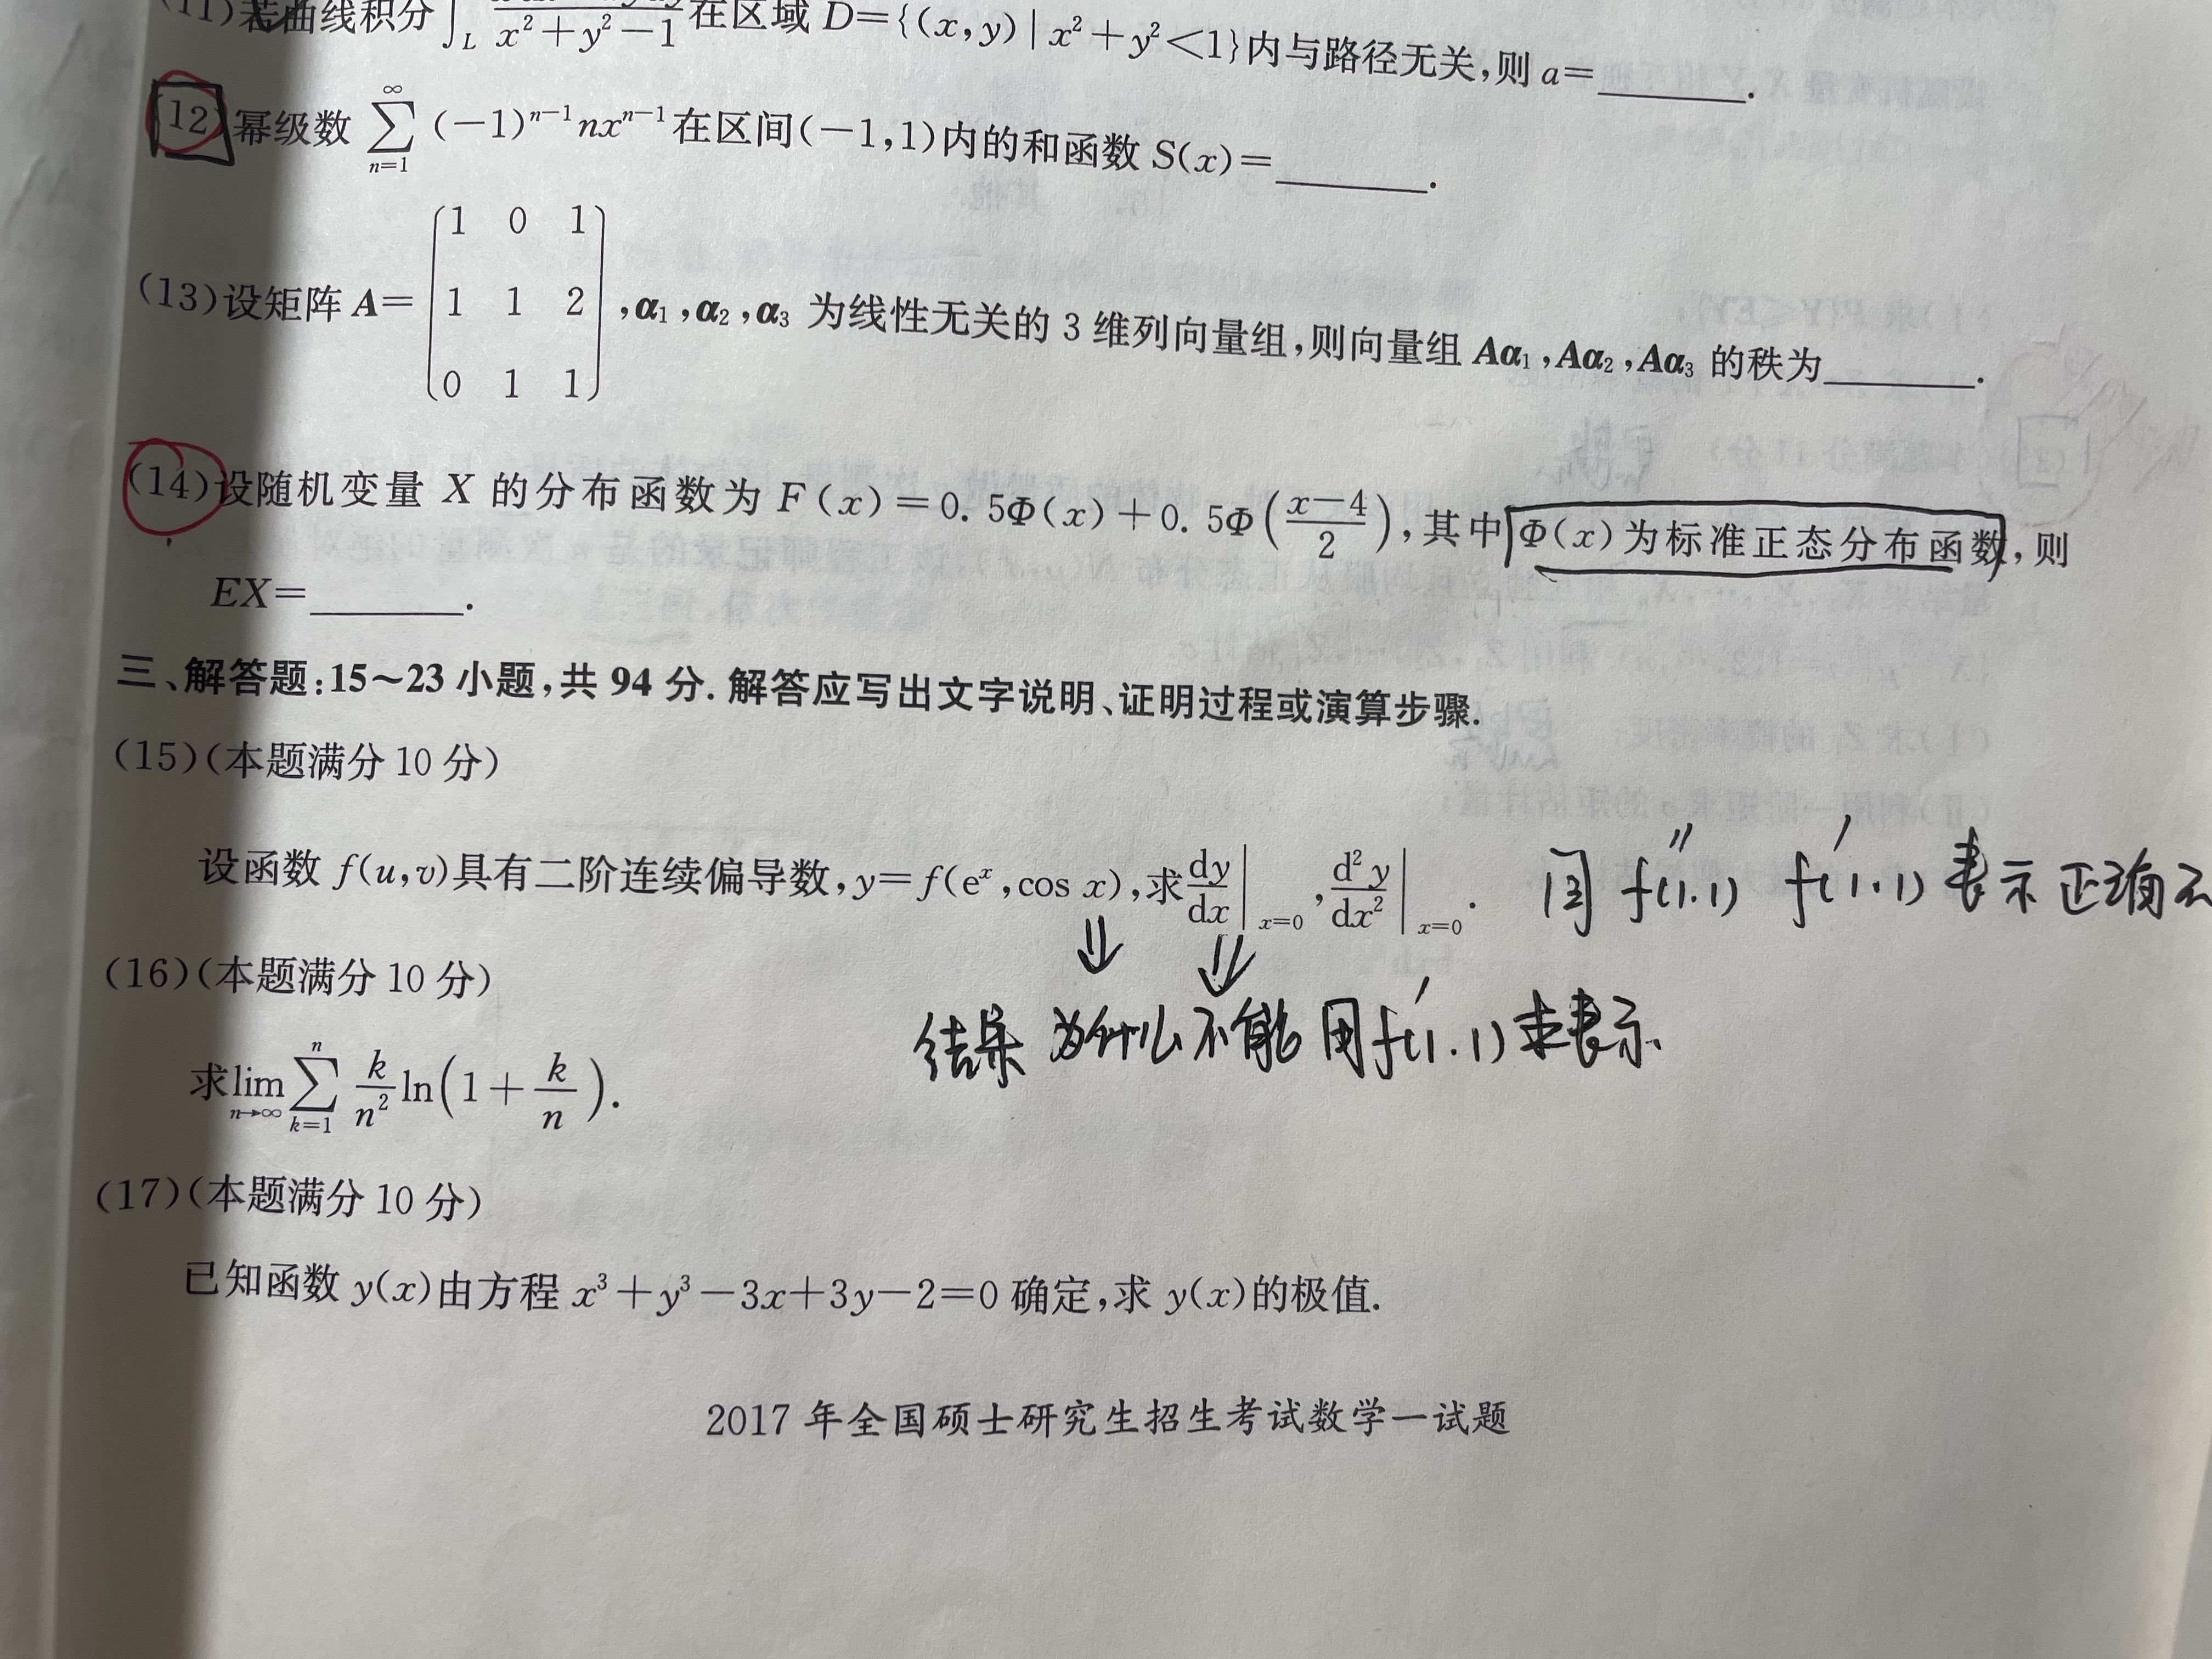 (11)若曲线积分∫_L x²+y²−1 在区域 D={(x,y)|x²+y²<1}内与路径无关,则 a=______.
(12)幂级数 ∑_{n=1}^{∞} (−1)^{n−1}nx^{n−1}在区间(−1,1)内的和函数 S(x)=______.
(13)设矩阵 A= (1 0 1; 1 1 2; 0 1 1) ,α₁,α₂,α₃ 为线性无关的 3 维列向量组,则向量组 Aα₁,Aα₂,Aα₃ 的秩为______.
(14)设随机变量 X 的分布函数为 F(x)=0.5Φ(x)+0.5Φ((x−4)/2),其中Φ(x)为标准正态分布函数,则
EX=______.
三、解答题:15~23 小题,共 94 分.解答应写出文字说明、证明过程或演算步骤.
(15)(本题满分 10 分)
设函数 f(u,v)具有二阶连续偏导数,y=f(eˣ,cos x),求 dy/dx|_{x=0}, d²y/dx²|_{x=0}. 用 f''(1.1) f'(1.1) 表示 正确
结果 为什么不能 用f'(1.1) 来表示.
(16)(本题满分 10 分)
求 lim_{n→∞} ∑_{k=1}^{n} k/n² ln(1+k/n).
(17)(本题满分 10 分)
已知函数 y(x)由方程 x³+y³−3x+3y−2=0 确定,求 y(x)的极值.
2017 年全国硕士研究生招生考试数学一试题